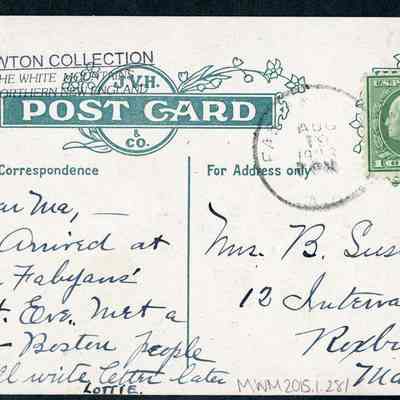 WTON COLLECTION
THE WHITE MOUNTAINS
NORTHERN NEW ENGLAND
J.V.H.
POST CARD
& CO.
Correspondence
For Address only
FA
AUG
U.S. POS
ar Ma, —
Arrived at
Fabyans'
t. Eve. Met a
Boston people
ll write letter later
LOTTIE.
Mrs. B. Sus
12 Interva
Roxbu
Ma
MWM2015.1.281